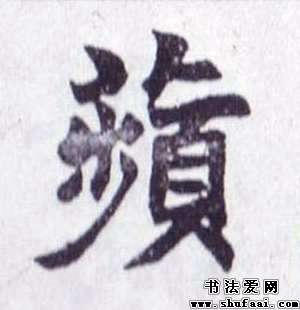 蘋
书法爱网
www.shufaai.com